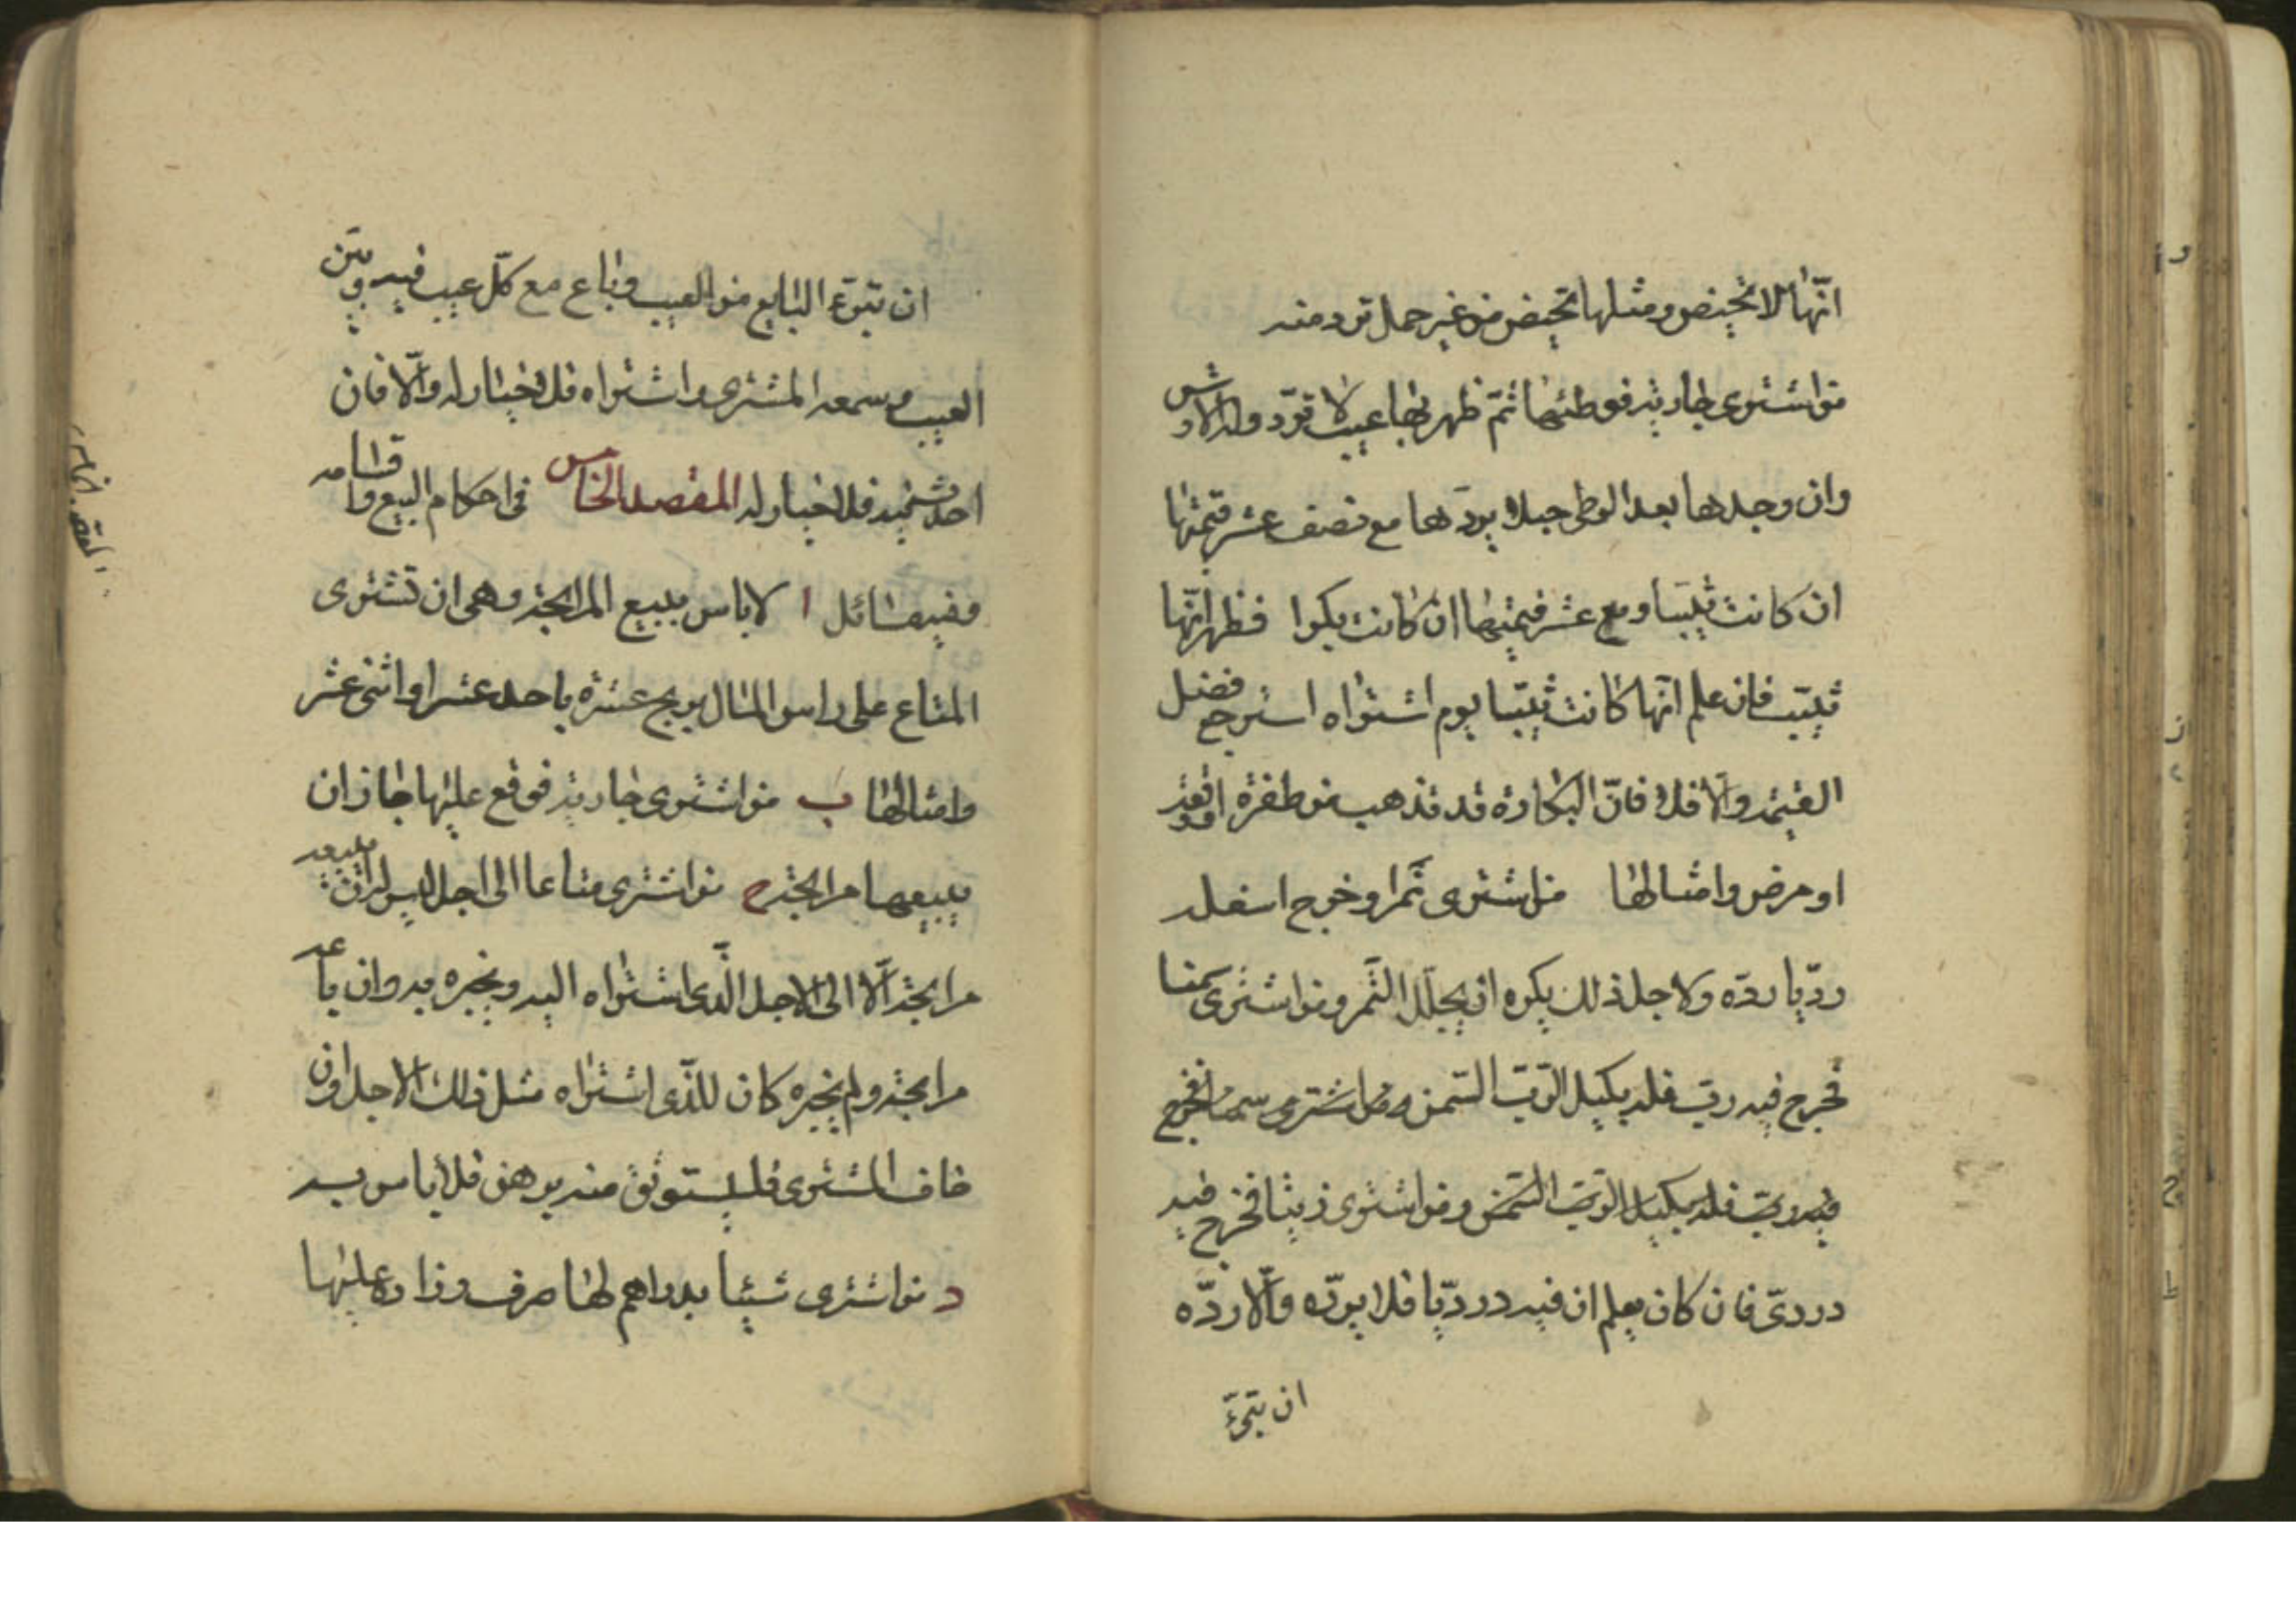 انّها لا تحيض ومثلها تحيض من غير حمل ترد منه
من اشترى جارية فوطئها ثمّ ظهر بها عيب لا تردّ وله الارش
وان وجدها بعد الوطى حبلا يردّها مع نصف عشر قيمتها
ان كانت ثيّبا ومع عشر قيمتها ان كانت بكرا فظهر انّها
ثيّب فان علم انّها كانت ثيّبا يوم اشتراه استرجع فضل
القيمة والّا فلا فانّ البكارة قد تذهب من طفرة
او مرض وامثالها من اشترى تمرا وخرج اسفله
رديّا ردّه ولاجل ذلك يكره ان يجلّل التّمر ومن اشترى سمنا
فخرج فيه ربّ فله بكيل الرّبّ السّمن ومن اشترى سمنا فخرج
فيه ربّ فله بكيل الرّبّ السّمن ومن اشترى زيتا فخرج فيه
دردىّ فان كان يعلم ان فيه درديّا فلا يردّه والّا ردّه
ان يتبرّئ
ان يتبرّء البايع من العيب وباع مع كلّ عيب فيه وبيّن
العيب وسمعه المشترى واشتراه فلا خيار له والّا فان
احدث فيه فلا خيار له المقصد الخامس فى احكام البيع واقسامه
وفيه مسائل ا لا باس ببيع المرابحة وهى ان تشترى
المتاع على راس المال بربح عشرة باحد عشر او اثنى عشر
وامثالها ب من اشترى جارية فوقع عليها جاز ان
يبيعها مرابحة ج من اشترى متاعا الى اجل ليس له ان يبيعه
مرابحة الّا الى الاجل الّذى اشتراه اليه ويخبره به وان باعه
مرابحة ولم يخبره كان للّذى اشتراه مثل ذلك الاجل وان
خاف المشترى فليستوثق منه برهن فلا باس به
د من اشترى شيئا بدراهم لها صرف وزاده عليها
المقصد الخامس